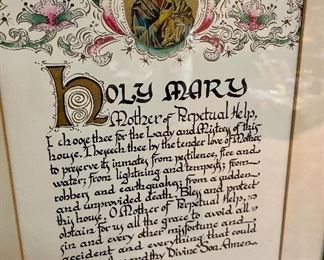 HOLY MARY
Mother of Perpetual Help,
I choose thee for the Lady and Mistress of this
house. I beseech thee by the tender love of Mother
to preserve its inmates from pestilence, fire and
water; from lightning and tempests; from
robbers and earthquake; from a sudden
and unprovided death. Bless and protect
this house, O Mother of Perpetual Help,
obtain for us all the grace to avoid all
sin and every other misfortune and
accident and everything that could
thee and thy Divine Son. Amen.